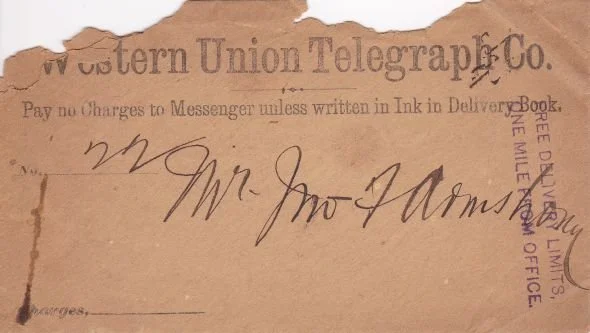 Western Union Telegraph Co.
Pay no Charges to Messenger unless written in Ink in Delivery Book.
No. 22
Mr. Jno F Armstrong
FREE DELIVERY LIMITS,
ONE MILE FROM OFFICE.
Charges,